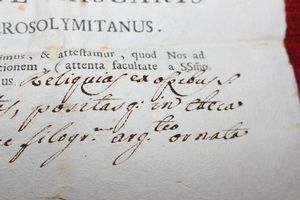 EROSOLYMITANUS.
imus, & attestamur, quod Nos ad
ctionem (attenta facultate a SSmo
us. Reliquias ex ossibus S.
positasq; in theca
filogr. arg.teo ornata